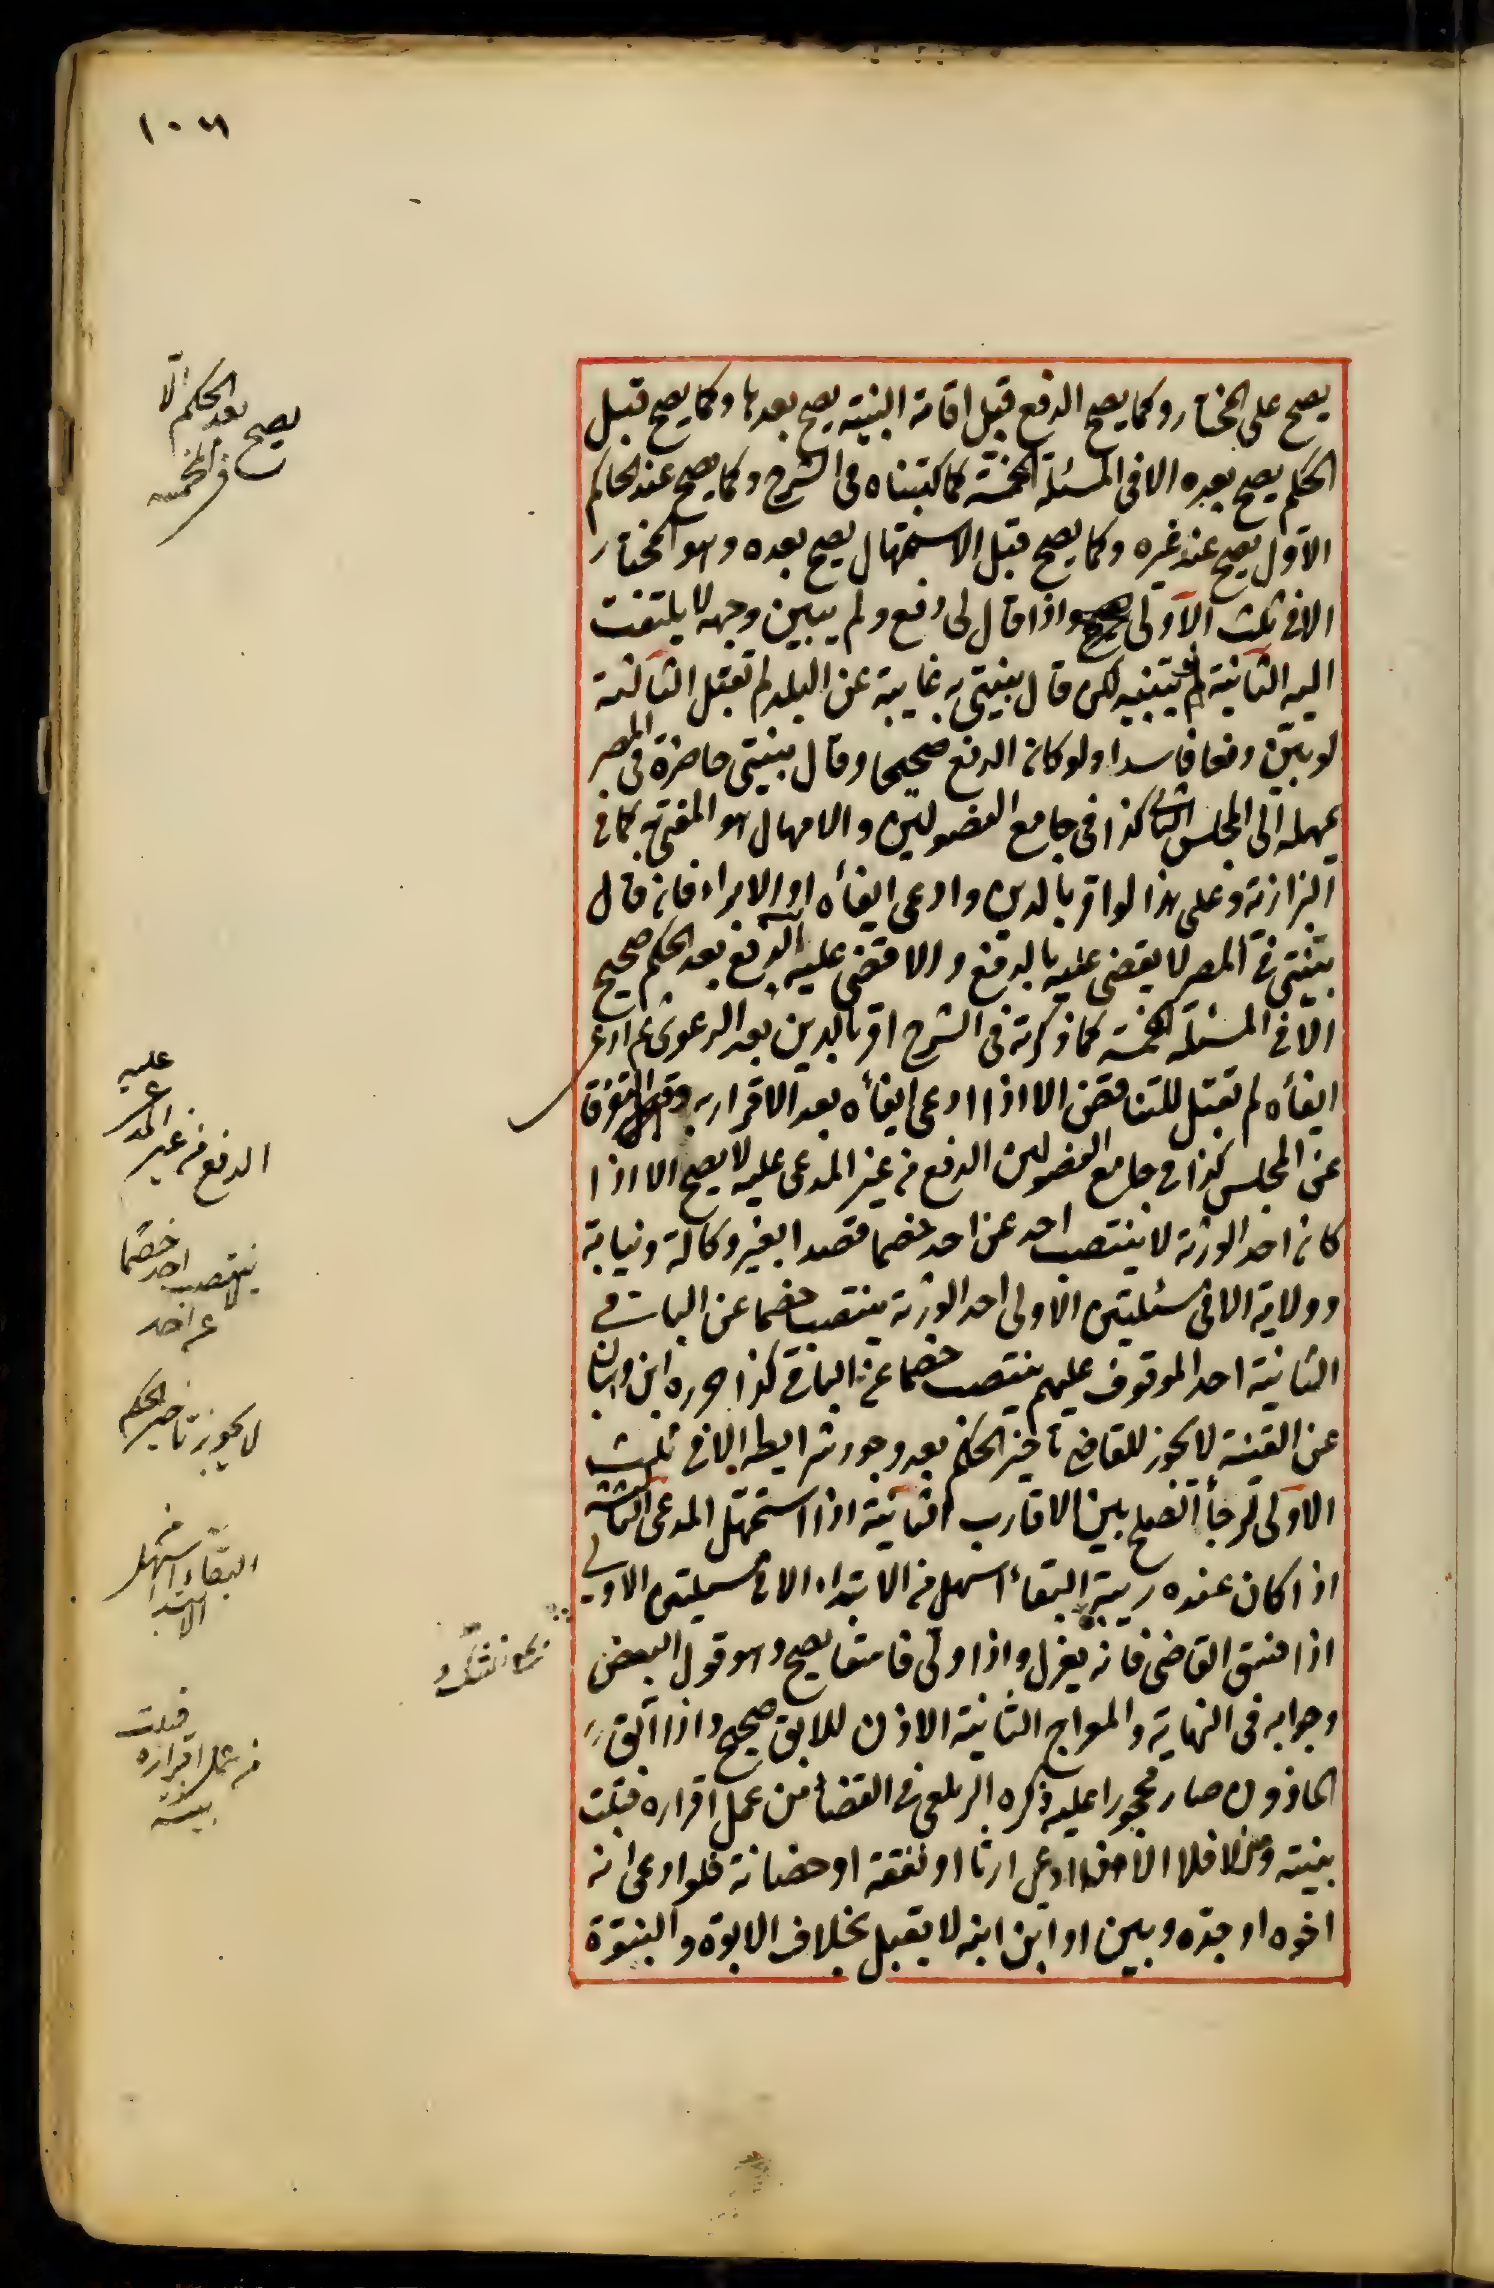 ١٠٦
يصح على المختار وكما يصح الدفع قبل اقامة البينة يصح بعدها وكما يصح قبل
الحكم يصح بعده الا فى المسئلة المخمسة كما كتبناه فى الشرح وكما يصح عند الحاكم
الاول يصح عند غيره وكما يصح قبل الاستمهال يصح بعده وهو المختار
الا فى ثلث الاولى اذا قال لى دفع ولم يبين وجهه لا يلتفت
اليه الثانية لو بينه لكن قال بينتى به غايبة عن البلد لم تقبل الثالثة
لو بين دفعا فاسدا ولو كان الدفع صحيحا وقال بينتى حاضرة فى المصر
يمهله الى المجلس الثانى كذا فى جامع الفصولين والامهال هو المفتى به كما فى
البزازية وعلى هذا لو اقر بالدين وادعى ايفاه او الابراء فان قال
بينتى فى المصر لا يقضى عليه بالدفع والا قضى عليه الدفع بعد الحكم صحيح
الا فى المسئلة المخمسة كما ذكرته فى الشرح اقر بالدين بعد الدعوى ثم ادعى
ايفاه لم تقبل للتناقض الا اذا ادعى ايفاه بعد الاقرار به التفرق
عن المجلس كذا فى جامع الفصولين الدفع من غير المدعى عليه لا يصح الا اذا
كان احد الورثة لا ينتصب احد عن احد خصما قصدا بغير وكالة ونيابة
وولاية الا فى مسئلتين الاولى احد الورثة ينتصب خصما عن الباقى
الثانية احد الموقوف عليهم ينتصب خصما عن الباقى كذا حرره ابن وهبان
عن القنية لا يجوز للقاضى تاخير الحكم بعد وجود شرايطه الا فى ثلث
الاولى لرجاء الصلح بين الاقارب الثانية اذا استمهل المدعى الثالثة
اذا كان عنده ريبة البقاء اسهل من الابتداء الا فى مسئلتين الاولى
اذا فسق القاضى فانه يعزل واذا ولى فاسقا يصح وهو قول البعض
وجوابه فى النهاية والمعراج الثانية الاذن للابق صحيح واذا ابق
الماذون صار محجورا عليه ذكره الزيلعى فى القضاء من عمل اقراره قبلت
بينته ومن لا فلا الا اذا ادعى ارثا او نفقة او حضانة فلو ادعى انه
اخوه او جده وبين او ابن ابنه لا يقبل بخلاف الابوة والبنوة
يصح بعد الحكم الا
فى المخمسة
الدفع من غير المدعى
عليه
لا ينتصب احد خصما
عن احد
لا يجوز تاخير الحكم
البقاء اسهل من
الابتدا
من عمل اقراره قبلت
بينته